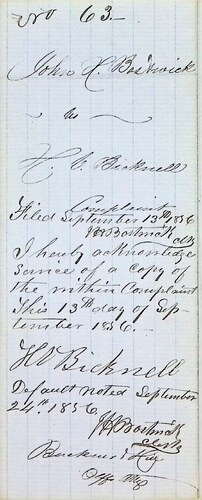 No 63.
John H. Bostwick
vs
H. C. Bicknell
Complaint
Filed September 13th 1856
JHBostwick
clk
I hereby acknowledge
service of a copy of
the within Complaint
this 13th day of Sep-
tember 1856.
HCBicknell
Default noted September
24th. 1856
JHBostwick
clerk
Buckner &
Atty